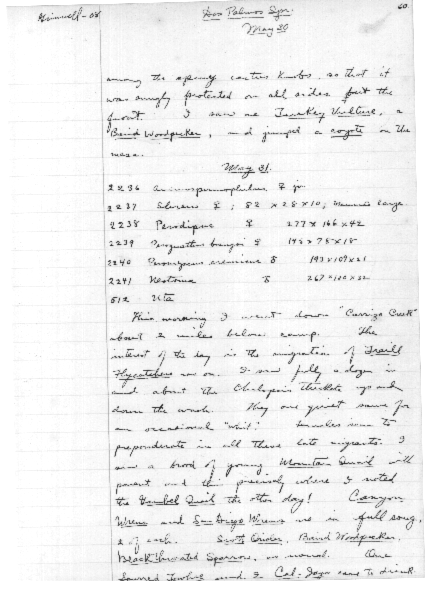 Grinnell - 08
Dos Palmos Spr.
60
May 30
among the spiny cactus knobs, so that it
was snugly protected on all sides but the
front. I saw one Turkey Vulture, a
Baird Woodpecker, and jumped a coyote on the
mesa.
May 31.
2236 Ammospermophilus ♀ jr.
2237 ♀; 82 x 28 x 10; large.
2238 Perodipus ♀ 277 x 166 x 42
2239 Perognathus
2240 Peromyscus eremicus ♂ 193 x 109 x 21
2241 Neotoma ♂
512 Uta
This morning I went down "Carrizo Creek"
about 2 miles below camp. The
interest of the day is the migration of Traill
Flycatchers now on. I saw fully a dozen in
and about the thickets up and
down the wash. They are quiet save for
an occasional "whit". Females seem to
preponderate in all these late migrants. I
saw a brood of young Mountain Quail with
parent and this precisely where I noted
the Gambel Quail the other day! Canyon
Wrens and San Diego Wrens are in full song,
2 of each. Scott Oriole, Baird Woodpecker,
Black-throated Sparrow, as usual. One
Towhee and 2 Cal. Jays came to drink